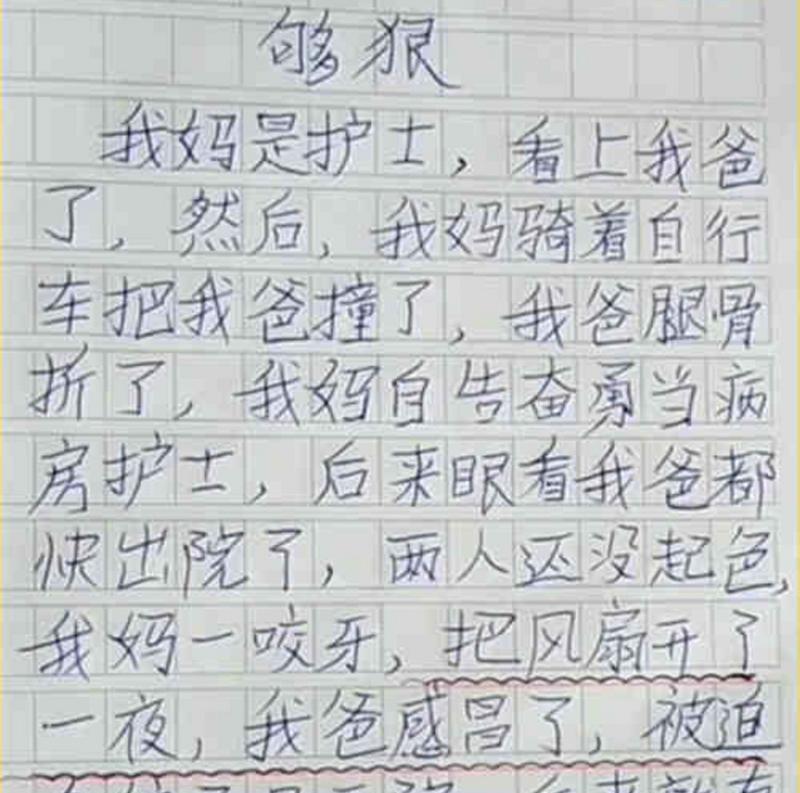 够狠
我妈是护士，看上我爸
了，然后，我妈骑着自行
车把我爸撞了，我爸腿骨
折了，我妈自告奋勇当病
房护士，后来眼看我爸都
快出院了，两人还没起色，
我妈一咬牙，把风扇开了
一夜，我爸感冒了，被迫